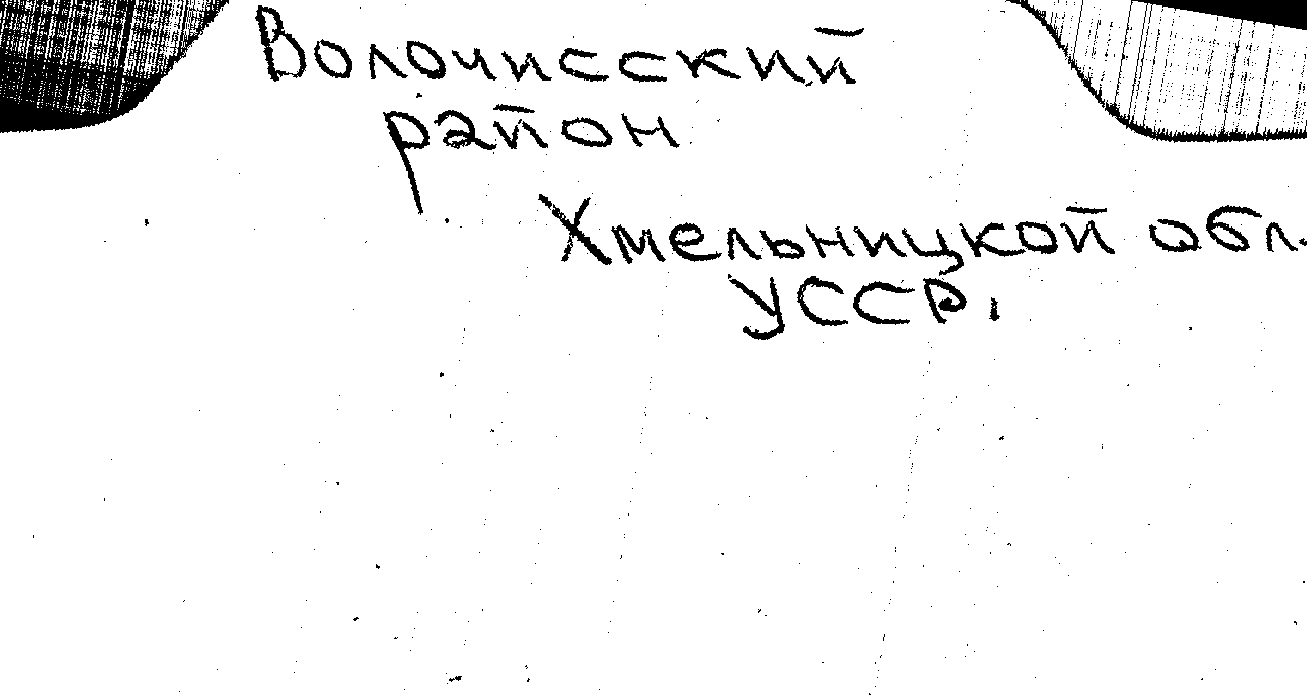 Волочисский
район
Хмельницкой обл.
УССР.